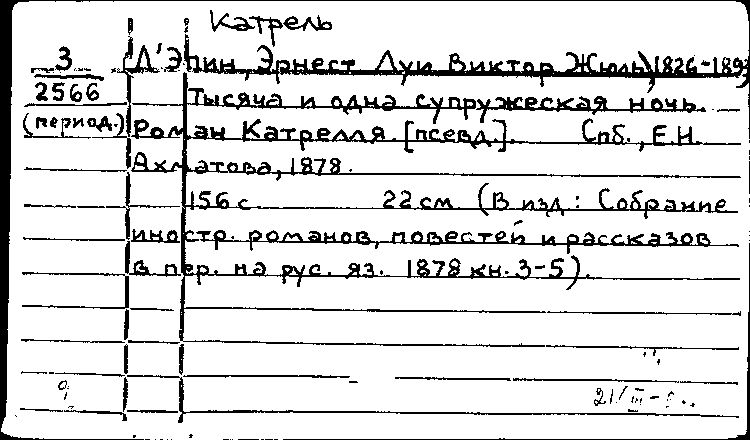 Катрель
3 (Л'Эпин, Эрнест Луи Виктор Жюль), 1826-1893
2566 Тысяча и одна супружеская ночь.
(период.) Роман Катрелля [псевд.]. Спб., Е.Н.
Ахматова, 1878.
156 с. 22 см (В изд: Собрание
иностр. романов, повестей и рассказов
в пер. на рус. яз. 1878 кн. 3-5).
21/III